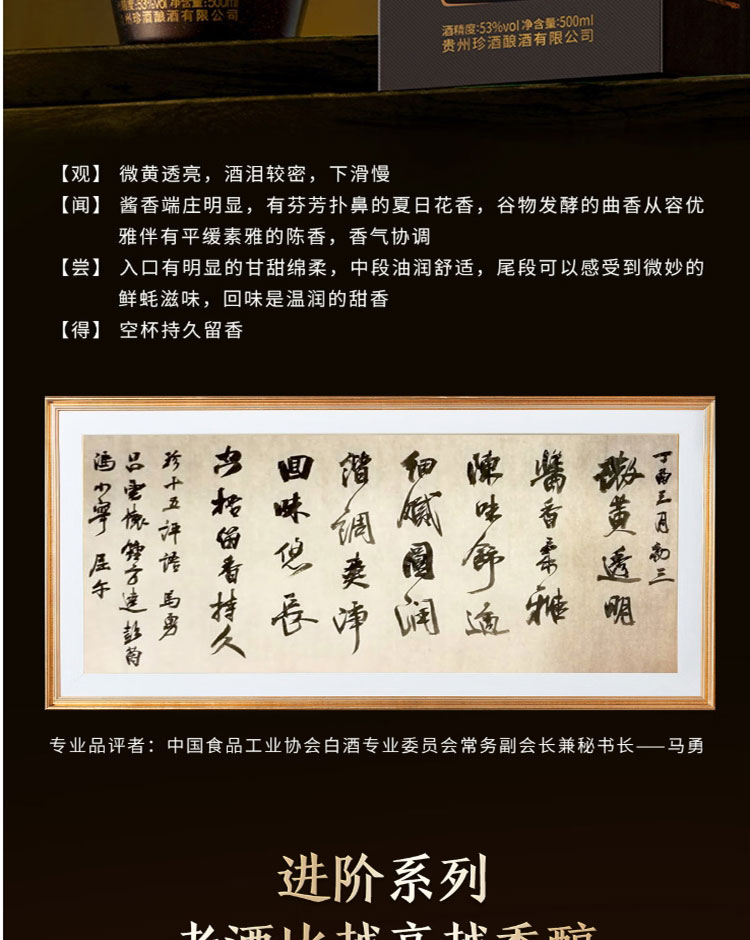 精度:53%vol 净含量:500ml
州珍酒酿酒有限公司
酒精度:53%vol 净含量:500ml
贵州珍酒酿酒有限公司
【观】 微黄透亮，酒泪较密，下滑慢
【闻】 酱香端庄明显，有芬芳扑鼻的夏日花香，谷物发酵的曲香从容优
雅伴有平缓素雅的陈香，香气协调
【尝】 入口有明显的甘甜绵柔，中段油润舒适，尾段可以感受到微妙的
鲜蚝滋味，回味是温润的甜香
【得】 空杯持久留香
丁酉三月初三
微黄透明
酱香柔雅
陳味舒適
细腻圆润
谐调爽净
回味悠長
空杯留香持久
珍十五評語 馬勇
吕雲懷 鍾方達 彭茵
馮小寧
专业品评者：中国食品工业协会白酒专业委员会常务副会长兼秘书长——马勇
进阶系列
老酒比越高越香醇